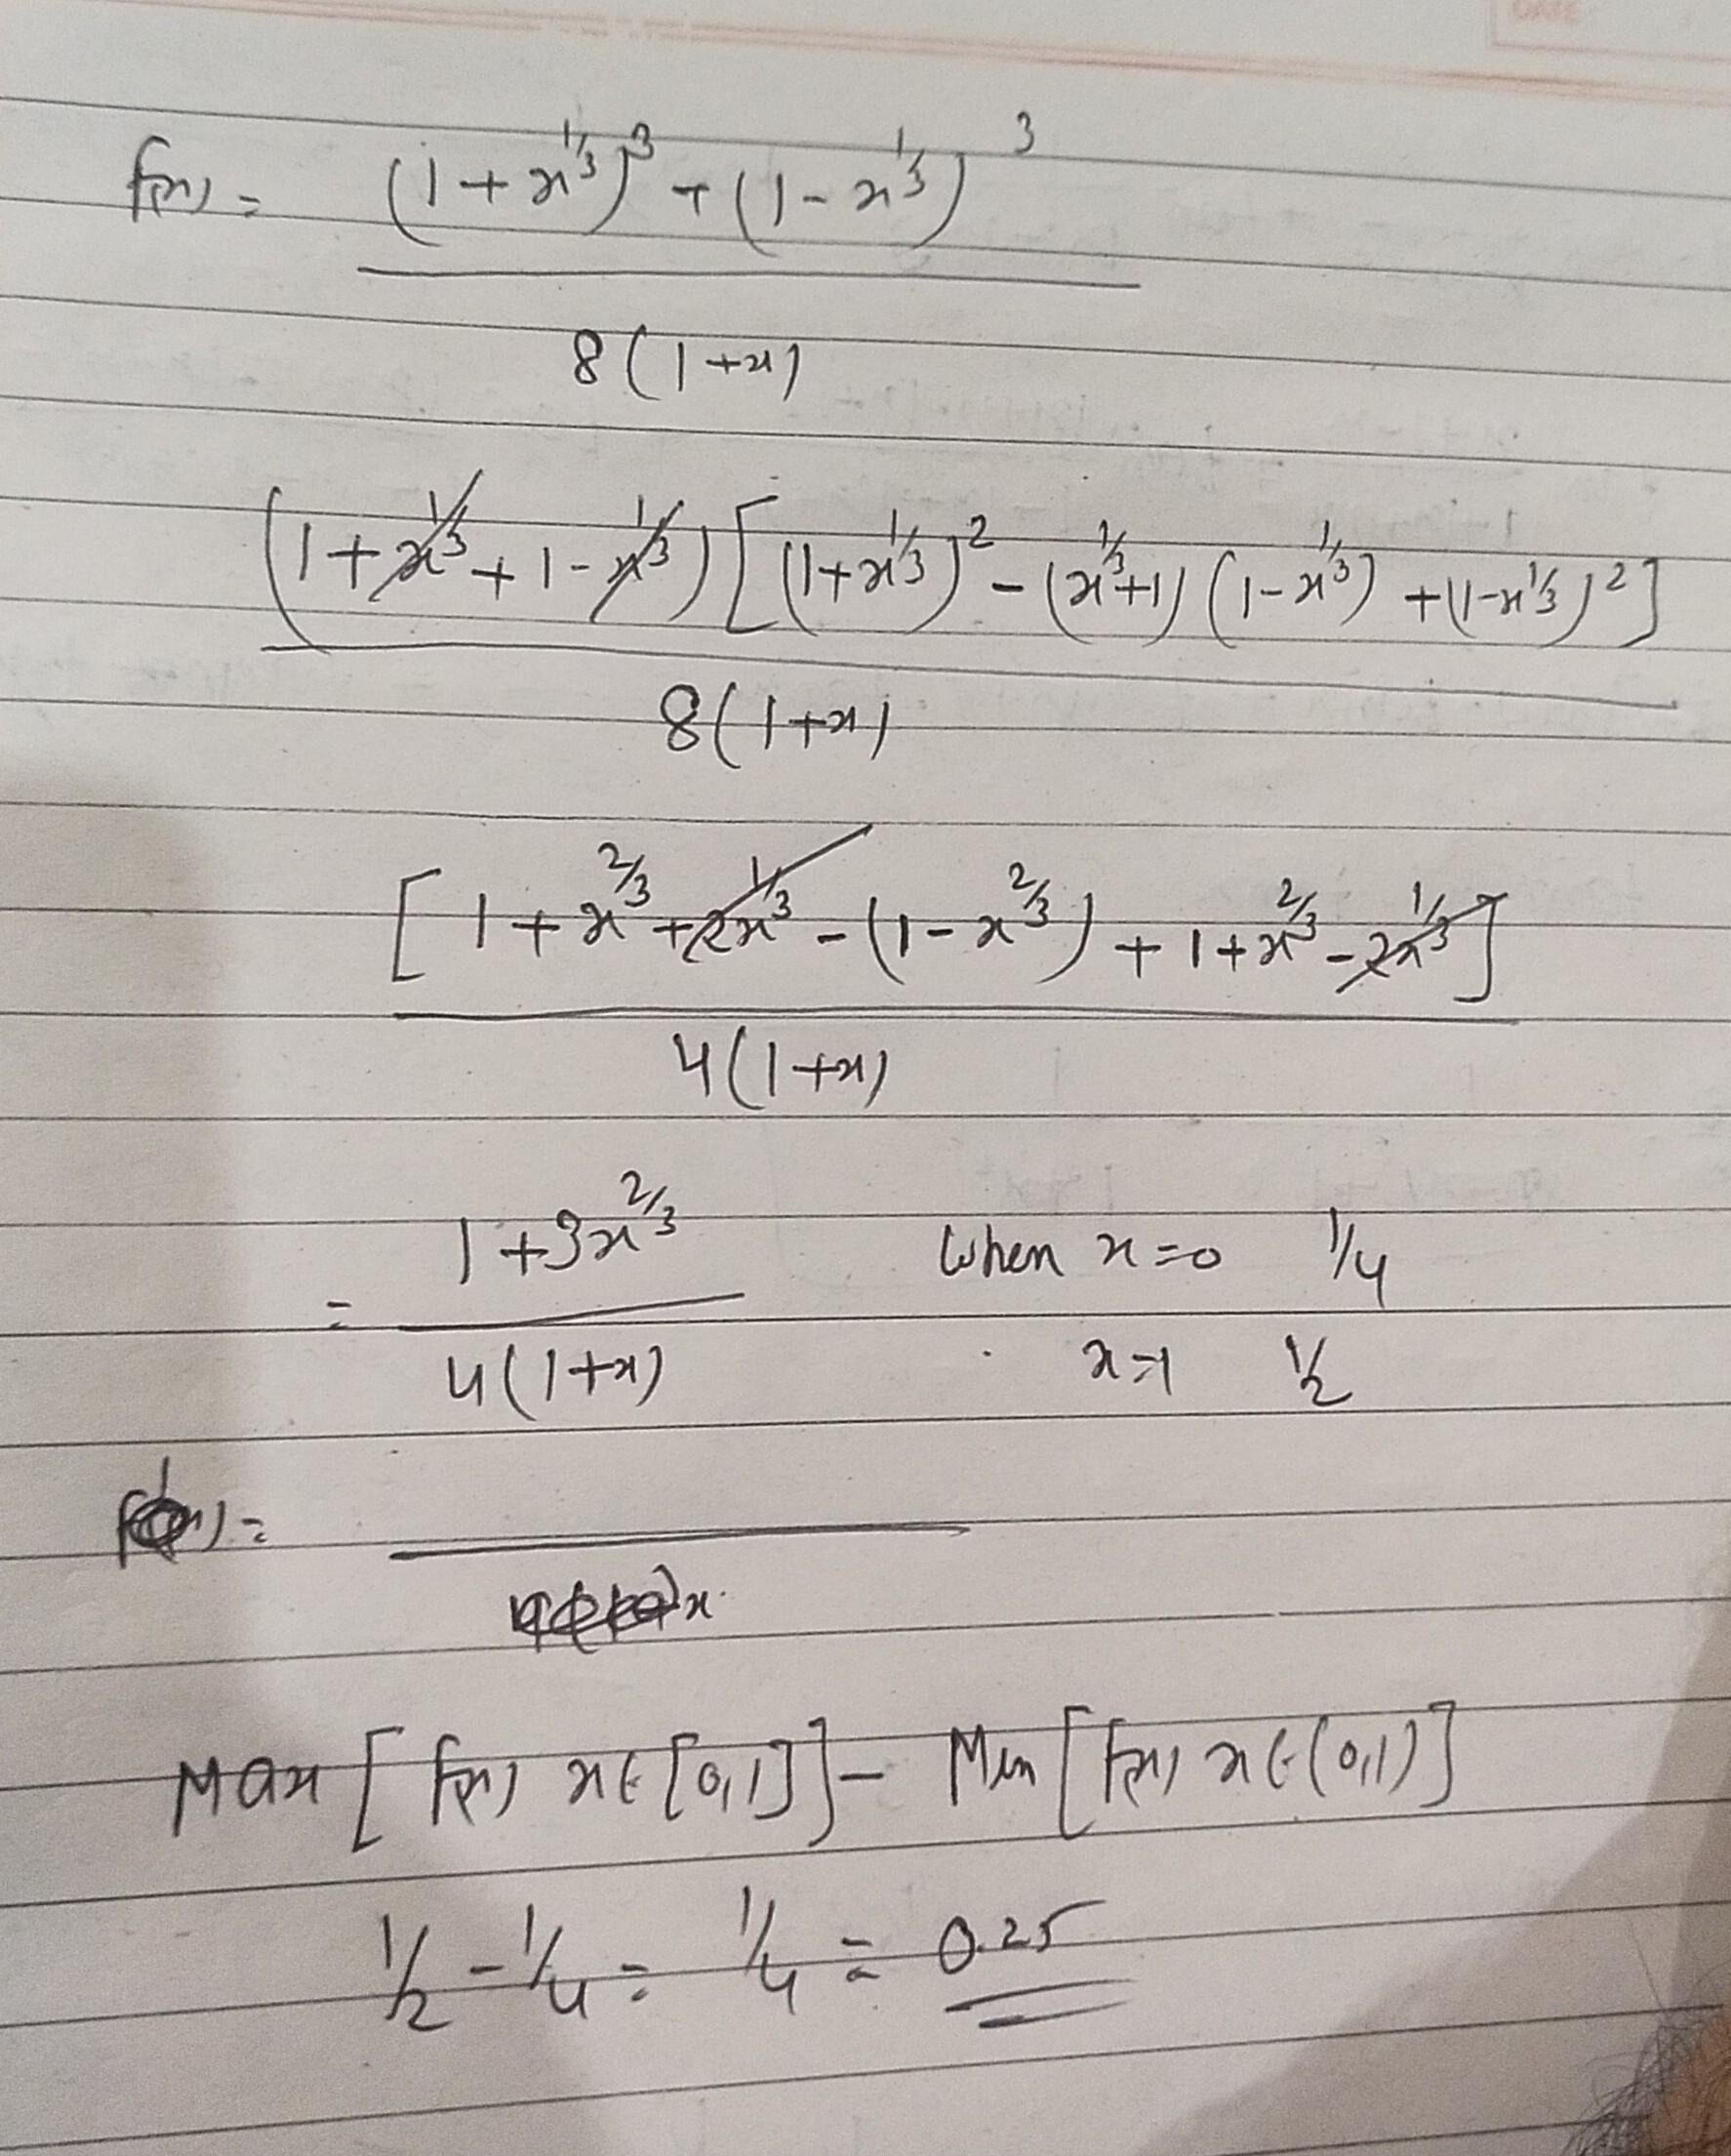 DATE
f(x) = (1+x^{1/3})^3 + (1-x^{1/3})^3
8(1+x)
(1+x^{1/3}+1-x^{1/3}) [(1+x^{1/3})^2 - (x^{1/3}+1)(1-x^{1/3}) + (1-x^{1/3})^2]
8(1+x)
[1+x^{2/3}+2x^{1/3} - (1-x^{2/3}) + 1+x^{2/3}-2x^{1/3}]
4(1+x)
= 1+3x^{2/3} When x=0 1/4
4(1+x) x=1 1/2
Max [f(x) x∈[0,1]] - Min [f(x) x∈(0,1)]
1/2 - 1/4 = 1/4 = 0.25